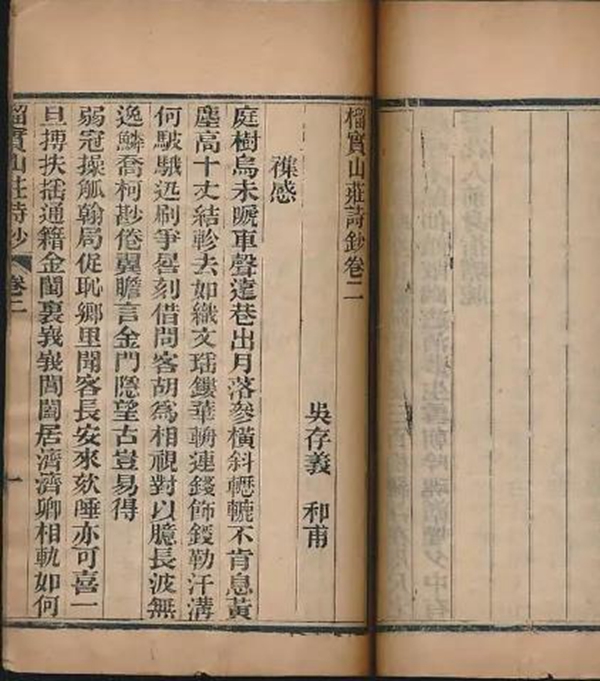 榴實山莊詩鈔卷二
吳存義 和甫
襍感
庭樹烏未嗁車聲遶巷出月落參橫斜轣轆不肯息黃
塵高十丈結軫去如織文瑶鏤華輈連錢飾鍐勒汗溝
何駊騀迅刷爭晷刻借問客胡為相視對以臆長波無
逸鱗喬柯尠倦翼瞻言金門隱望古豈易得
弱冠操觚翰局促恥鄉里聞客長安來欬唾亦可喜一
旦摶扶搖通籍金閨裏峩峩閶闔居濟濟卿相軌如何
榴實山莊詩鈔 卷二 一